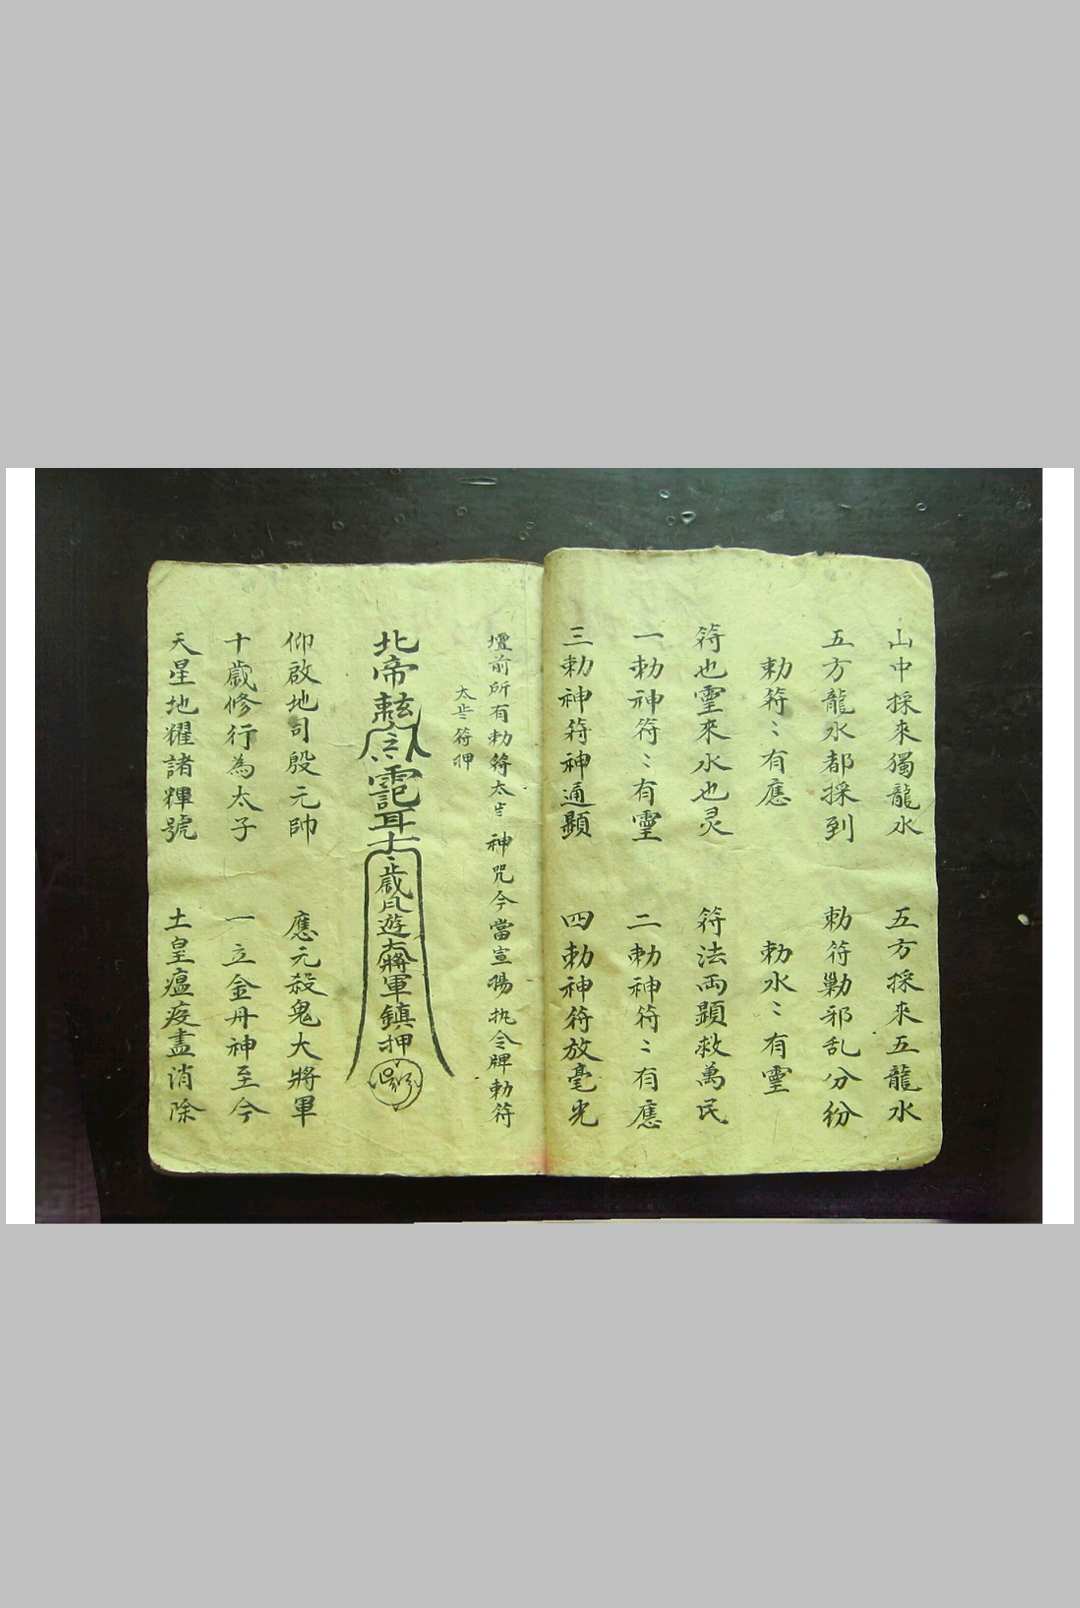 山中採來獨龍水　五方採來五龍水
五方龍水都採到　勅符勦邪乱分紛
勅符〻有應　勅水〻有靈
符也靈來水也灵　符法両顕救萬民
一勅神符〻有靈　二勅神符〻有應
三勅神符神通顕　四勅神符放毫光
壇前所有勅符太歲神咒今當宣陽执令牌勅符
太歲符押
北帝
歲
遊
將軍鎮押
仰啟地司殷元帥　應元殺鬼大將軍
十歲修行為太子　一立金丹神至今
天星地耀諸輝號　土皇瘟疫盡消除